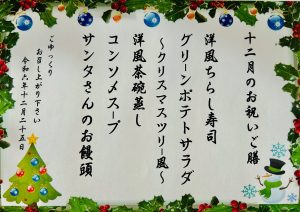 十二月のお祝いご膳
洋風ちらし寿司
グリーンポテトサラダ
～クリスマスツリー風～
洋風茶碗蒸し
コンソメスープ
サンタさんのお饅頭
ごゆっくり
お召し上がり下さい
令和六年十二月二十五日